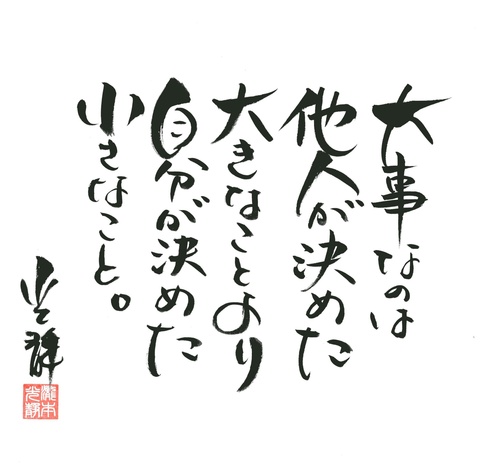 大事なのは
他人が決めた
大きなことより
自分が決めた
小さなこと。